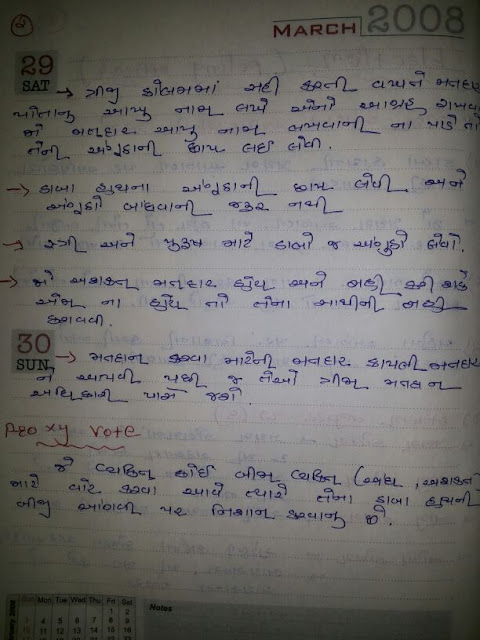 ②
MARCH 2008
29
SAT
→ ત્રીજી કોલમમાં સહી કરતી વખતે મતદાર
પોતાનુ આખુ નામ લખે એવો આગ્રહ રાખવો
જો મતદાર આખુ નામ લખવાની ના પાડે તો
તેની અંગૂઠાની છાપ લઈ લેવી.
→ ડાબા હાથના અંગૂઠાની છાપ લેવી અને
અંગૂઠો લૂછવાની જરૂર નથી
→ સ્ત્રી અને પુરુષ માટે ડાબો જ અંગુઠો લેવો.
→ જો અશકત મતદાર હોય અને સહી કરી શકે
એમ ના હોય તો તેના સાથીની સહી
કરાવવી.
30
SUN
→ મતદાન કરવા માટેની મતદાર કાપલી મતદાર
ને આપવી પછી જ તેઓ ત્રીજા મતદાન
અધિકારી પાસે જશે.
Proxy Vote
જો વ્યકિત કોઈ બીજા વ્યકિત (અંધ, અશકત
માટે વોટ કરવા આવે ત્યારે તેના ડાબા હાથની
બીજી આંગળી પર નિશાન કરવાનુ છે.
Mon Tue Wed Thu Fri Sat
1 2
4 5 6 7 8 9
11 12 13 14 15 16
Notes